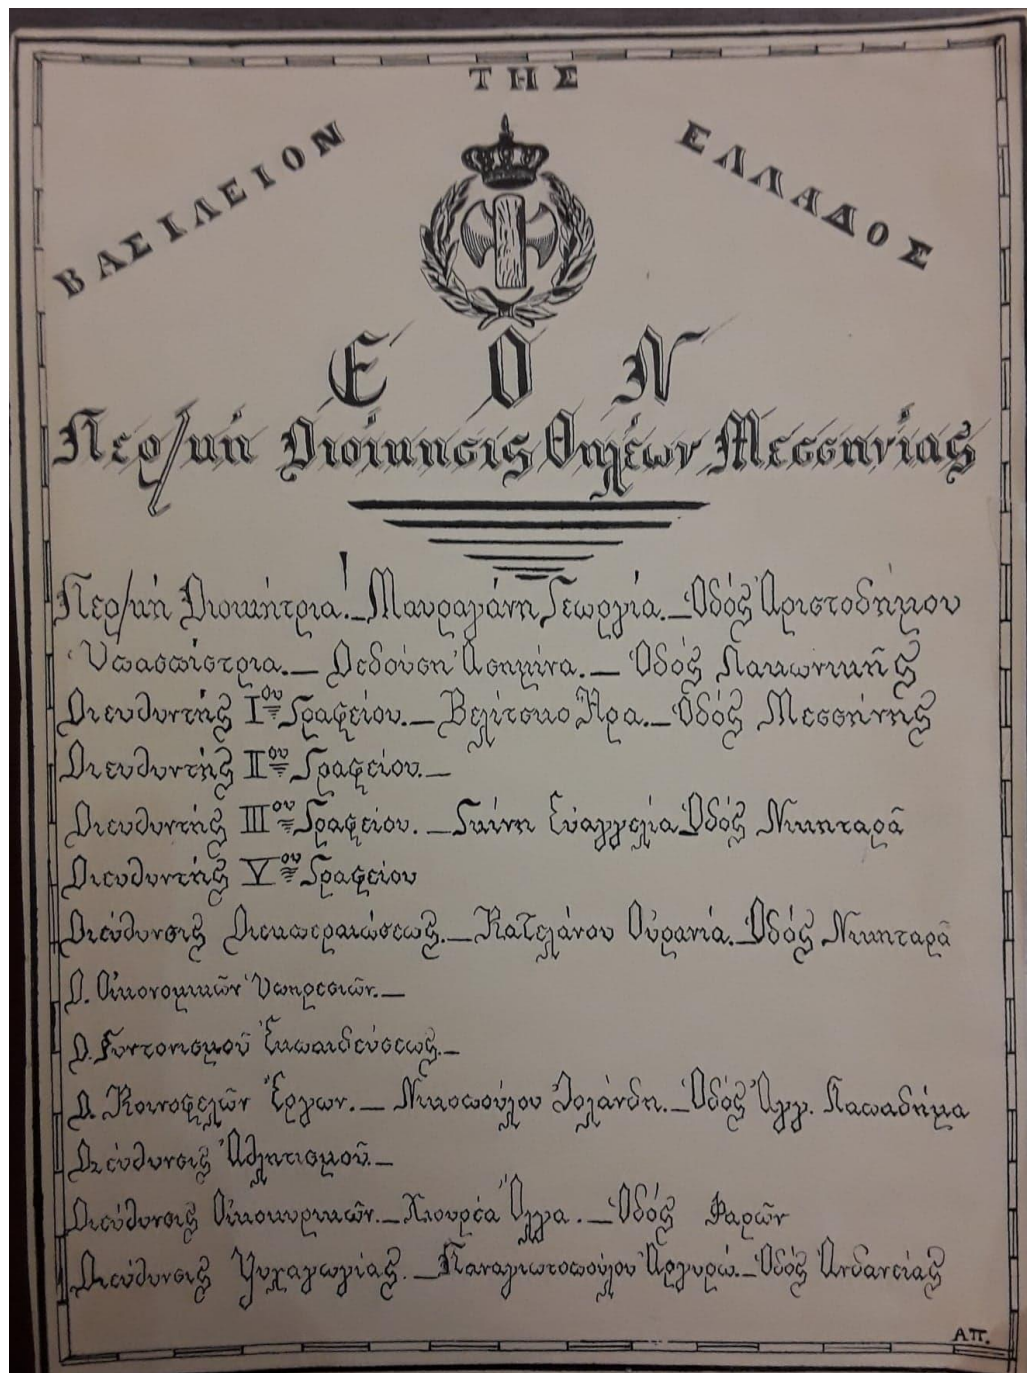 ΒΑΣΙΛΕΙΟΝ ΤΗΣ ΕΛΛΑΔΟΣ
Ε Ο Ν
Περ/κή Διοίκησις Θηλέων Μεσσηνίας
Περ/κή Διοικήτρια!_Μαυραγάνη Γεωργία._Ὁδός Ἀριστοδήμου
Ὑπασπίστρια._Δεδούση Ἀσημίνα._Ὁδός Λακωνικῆς
Διευθυντής Iου Γραφείου._Βελίτσκο Ἄρα._Ὁδός Μεσσήνης
Διευθυντής IIου Γραφείου._
Διευθυντής IIIου Γραφείου._Γκίνη Εὐαγγελία Ὁδός Νικηταρᾶ
Διευθυντής Vου Γραφείου
Διεύθυνσις Διεκπεραιώσεως._Κατελάνου Οὐρανία._Ὁδός Νικηταρᾶ
Δ. Οἰκονομικῶν Ὑπηρεσιῶν._
Δ. Συντονισμοῦ Ἐκπαιδεύσεως._
Δ. Κοινοφελῶν Ἔργων._Νικοπούλου Ἰολάνδη._Ὁδός Ἀγγ. Παπαδήμα
Διεύθυνσις Ἀθλητισμοῦ._
Διεύθυνσις Οἰκοκυρικῶν._Χιουρέα Ὄλγα._Ὁδός Φαρῶν
Διεύθυνσις Ψυχαγωγίας._Παναγιωτοπούλου Ἀργυρώ._Ὁδός Ἀνδανείας
ΑΠ.